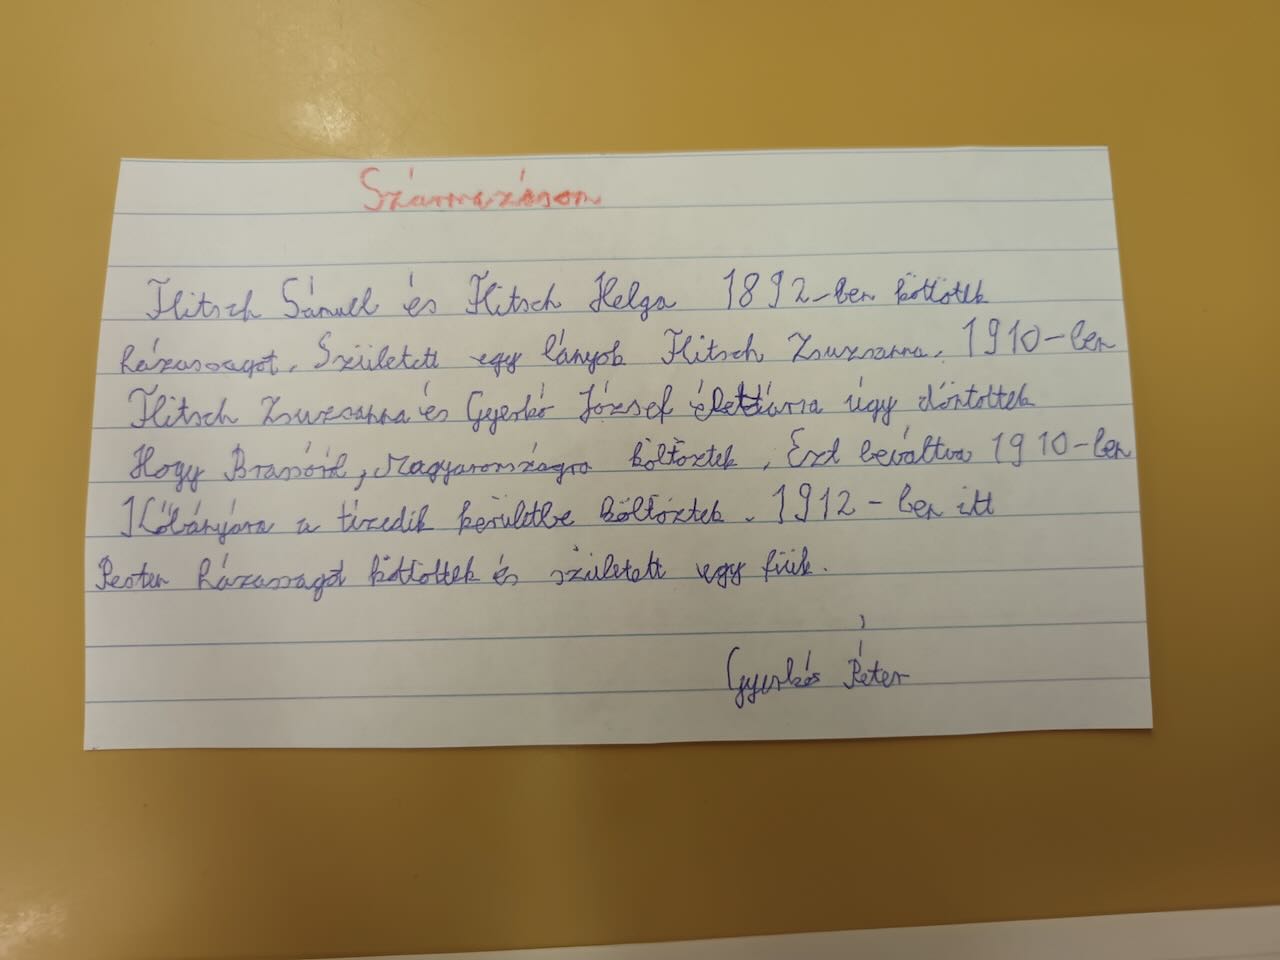 Származásom
Flitsch Sámuel és Flitsch Helga 1892-ben kötötek
házasságot. Született egy lányok Flitsch Zsuzsanna. 1910-ben
Flitsch Zsuzsanna és Gyerkó József élettárra úgy döntöttek
Hogy Brassóról, Magyarországra költöztek. Ezt beváltva 1910-ben
Kőbányára a tizedik kerületbe költöztek. 1912-ben itt
Pesten házasságot kötöttek és született egy fiúk.
Gyerkós Péter